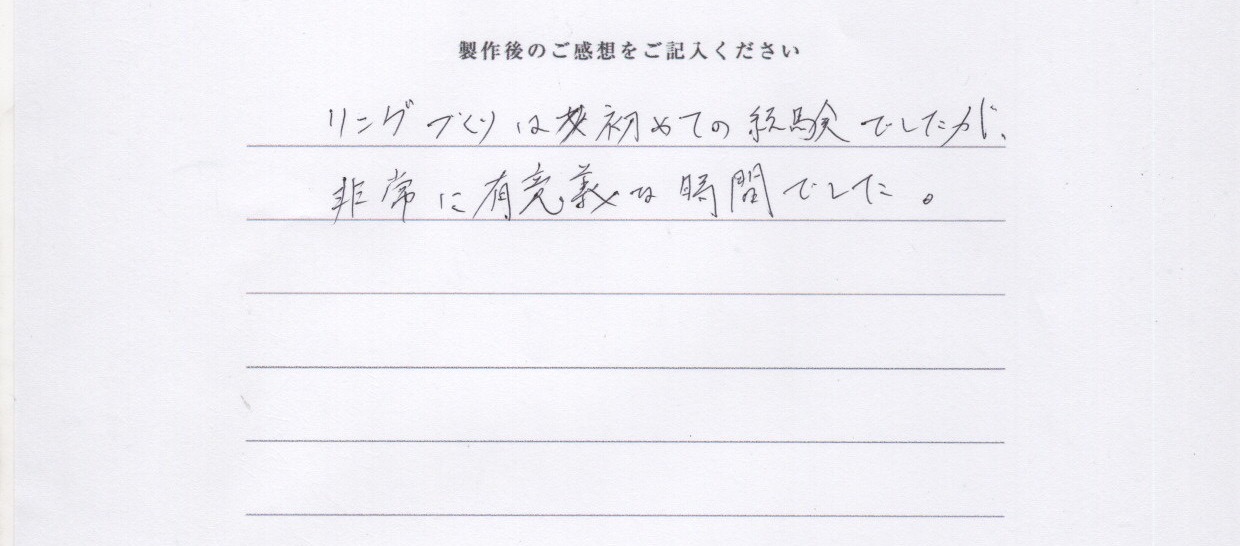 製作後のご感想をご記入ください
リングづくりは初めての経験でしたが、
非常に有意義な時間でした。